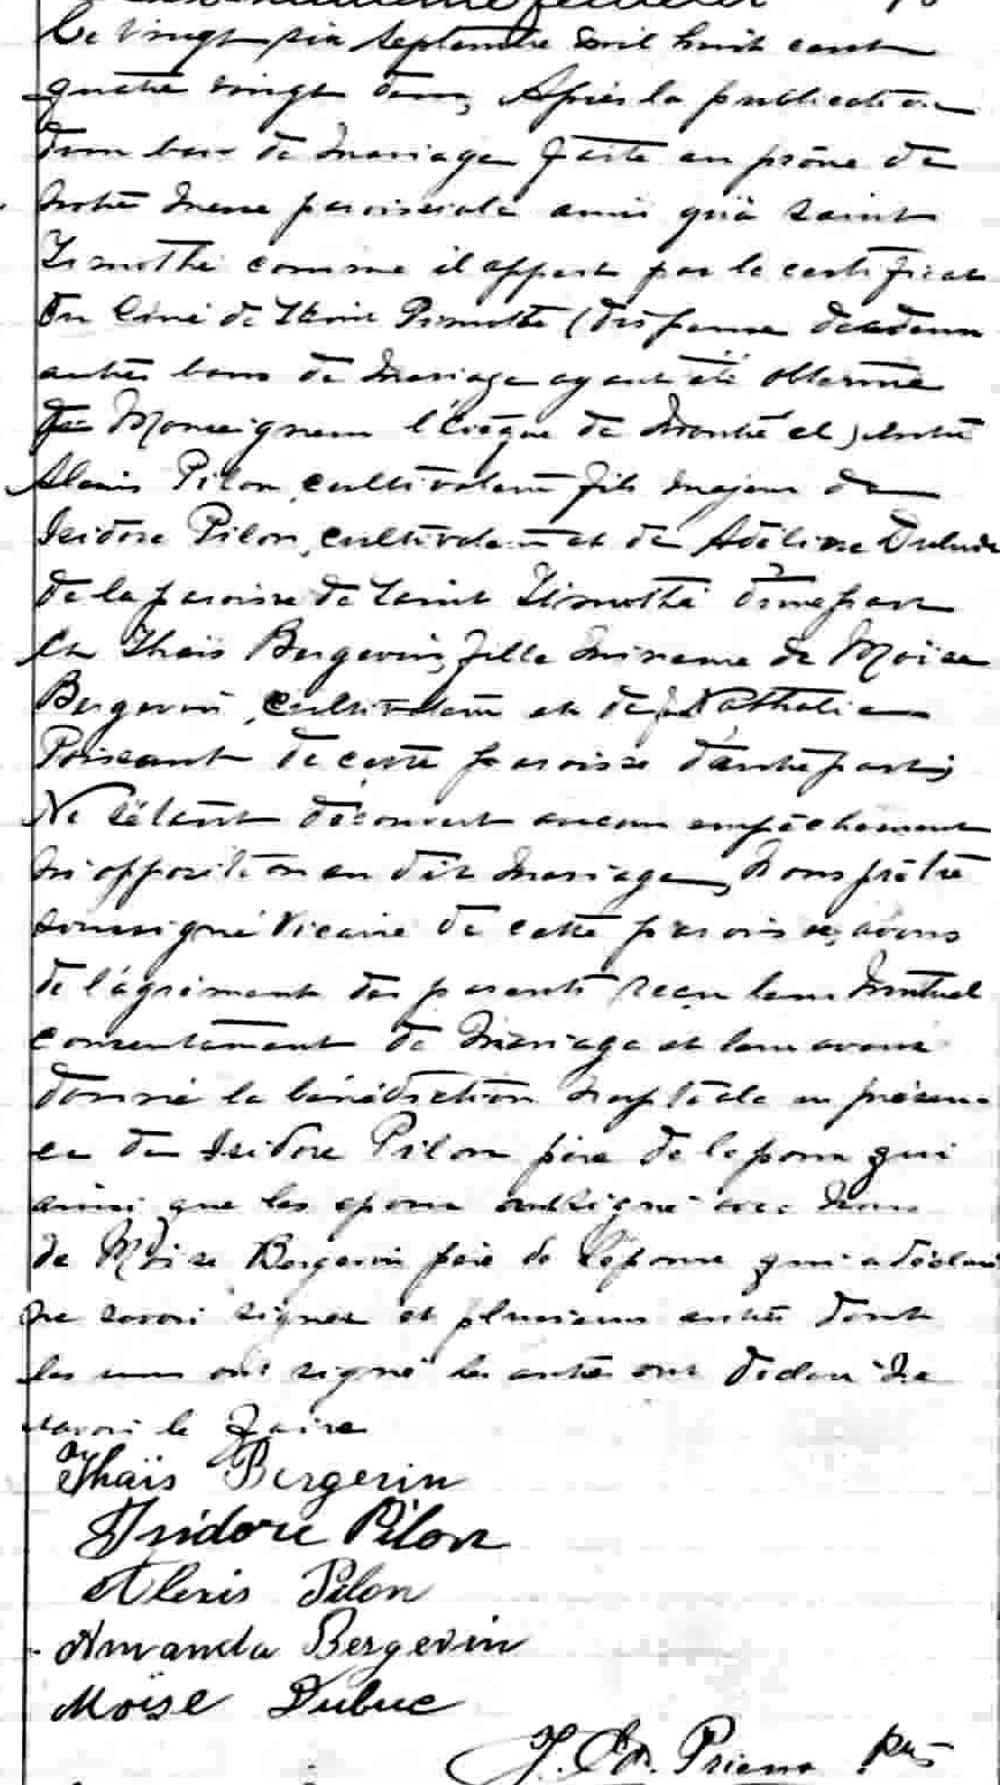 Le vingt six Septembre mil huit cent
quatre vingt deux, Après la publication
d'un ban de mariage faite au prône de
notre messe paroissiale ainsi qu'à Saint
Timothé comme il appert par le certificat
du Curé de Saint Timothé (dispense des deux
autres bans de mariage ayant été obtenue
de Monseigneur l'évêque de Montréal) entre
Alexis Pilon, cultivateur fils majeur de
Isidore Pilon, cultivateur et de Adéline
de la paroisse de Saint Timothé d'une part
Et Thaïs Bergevin, fille mineure de Moïse
Bergevin, cultivateur et de Nathalie
Poissant de cette paroisse d'autre part;
Ne s'étant découvert aucun empêchement
ni opposition au dit mariage, Nous prêtre
soussigné Vicaire de cette paroisse, avons
de l'agrément des parents reçu leur mutuel
consentement de mariage et leur avons
donné la bénédiction nuptiale en présen-
ce de Isidore Pilon père de l'epoux qui
ainsi que les epoux ont signé avec nous
de Moïse Bergevin père de l'épouse qui a déclaré
ne savoir signer et plusieurs autres dont
les uns ont signé les autres ont déclaré ne
savoir le faire
Thaïs Bergevin
Isidore Pilon
Alexis Pilon
Amanda Bergevin
Moïse Dubuc
J. Primo ptre